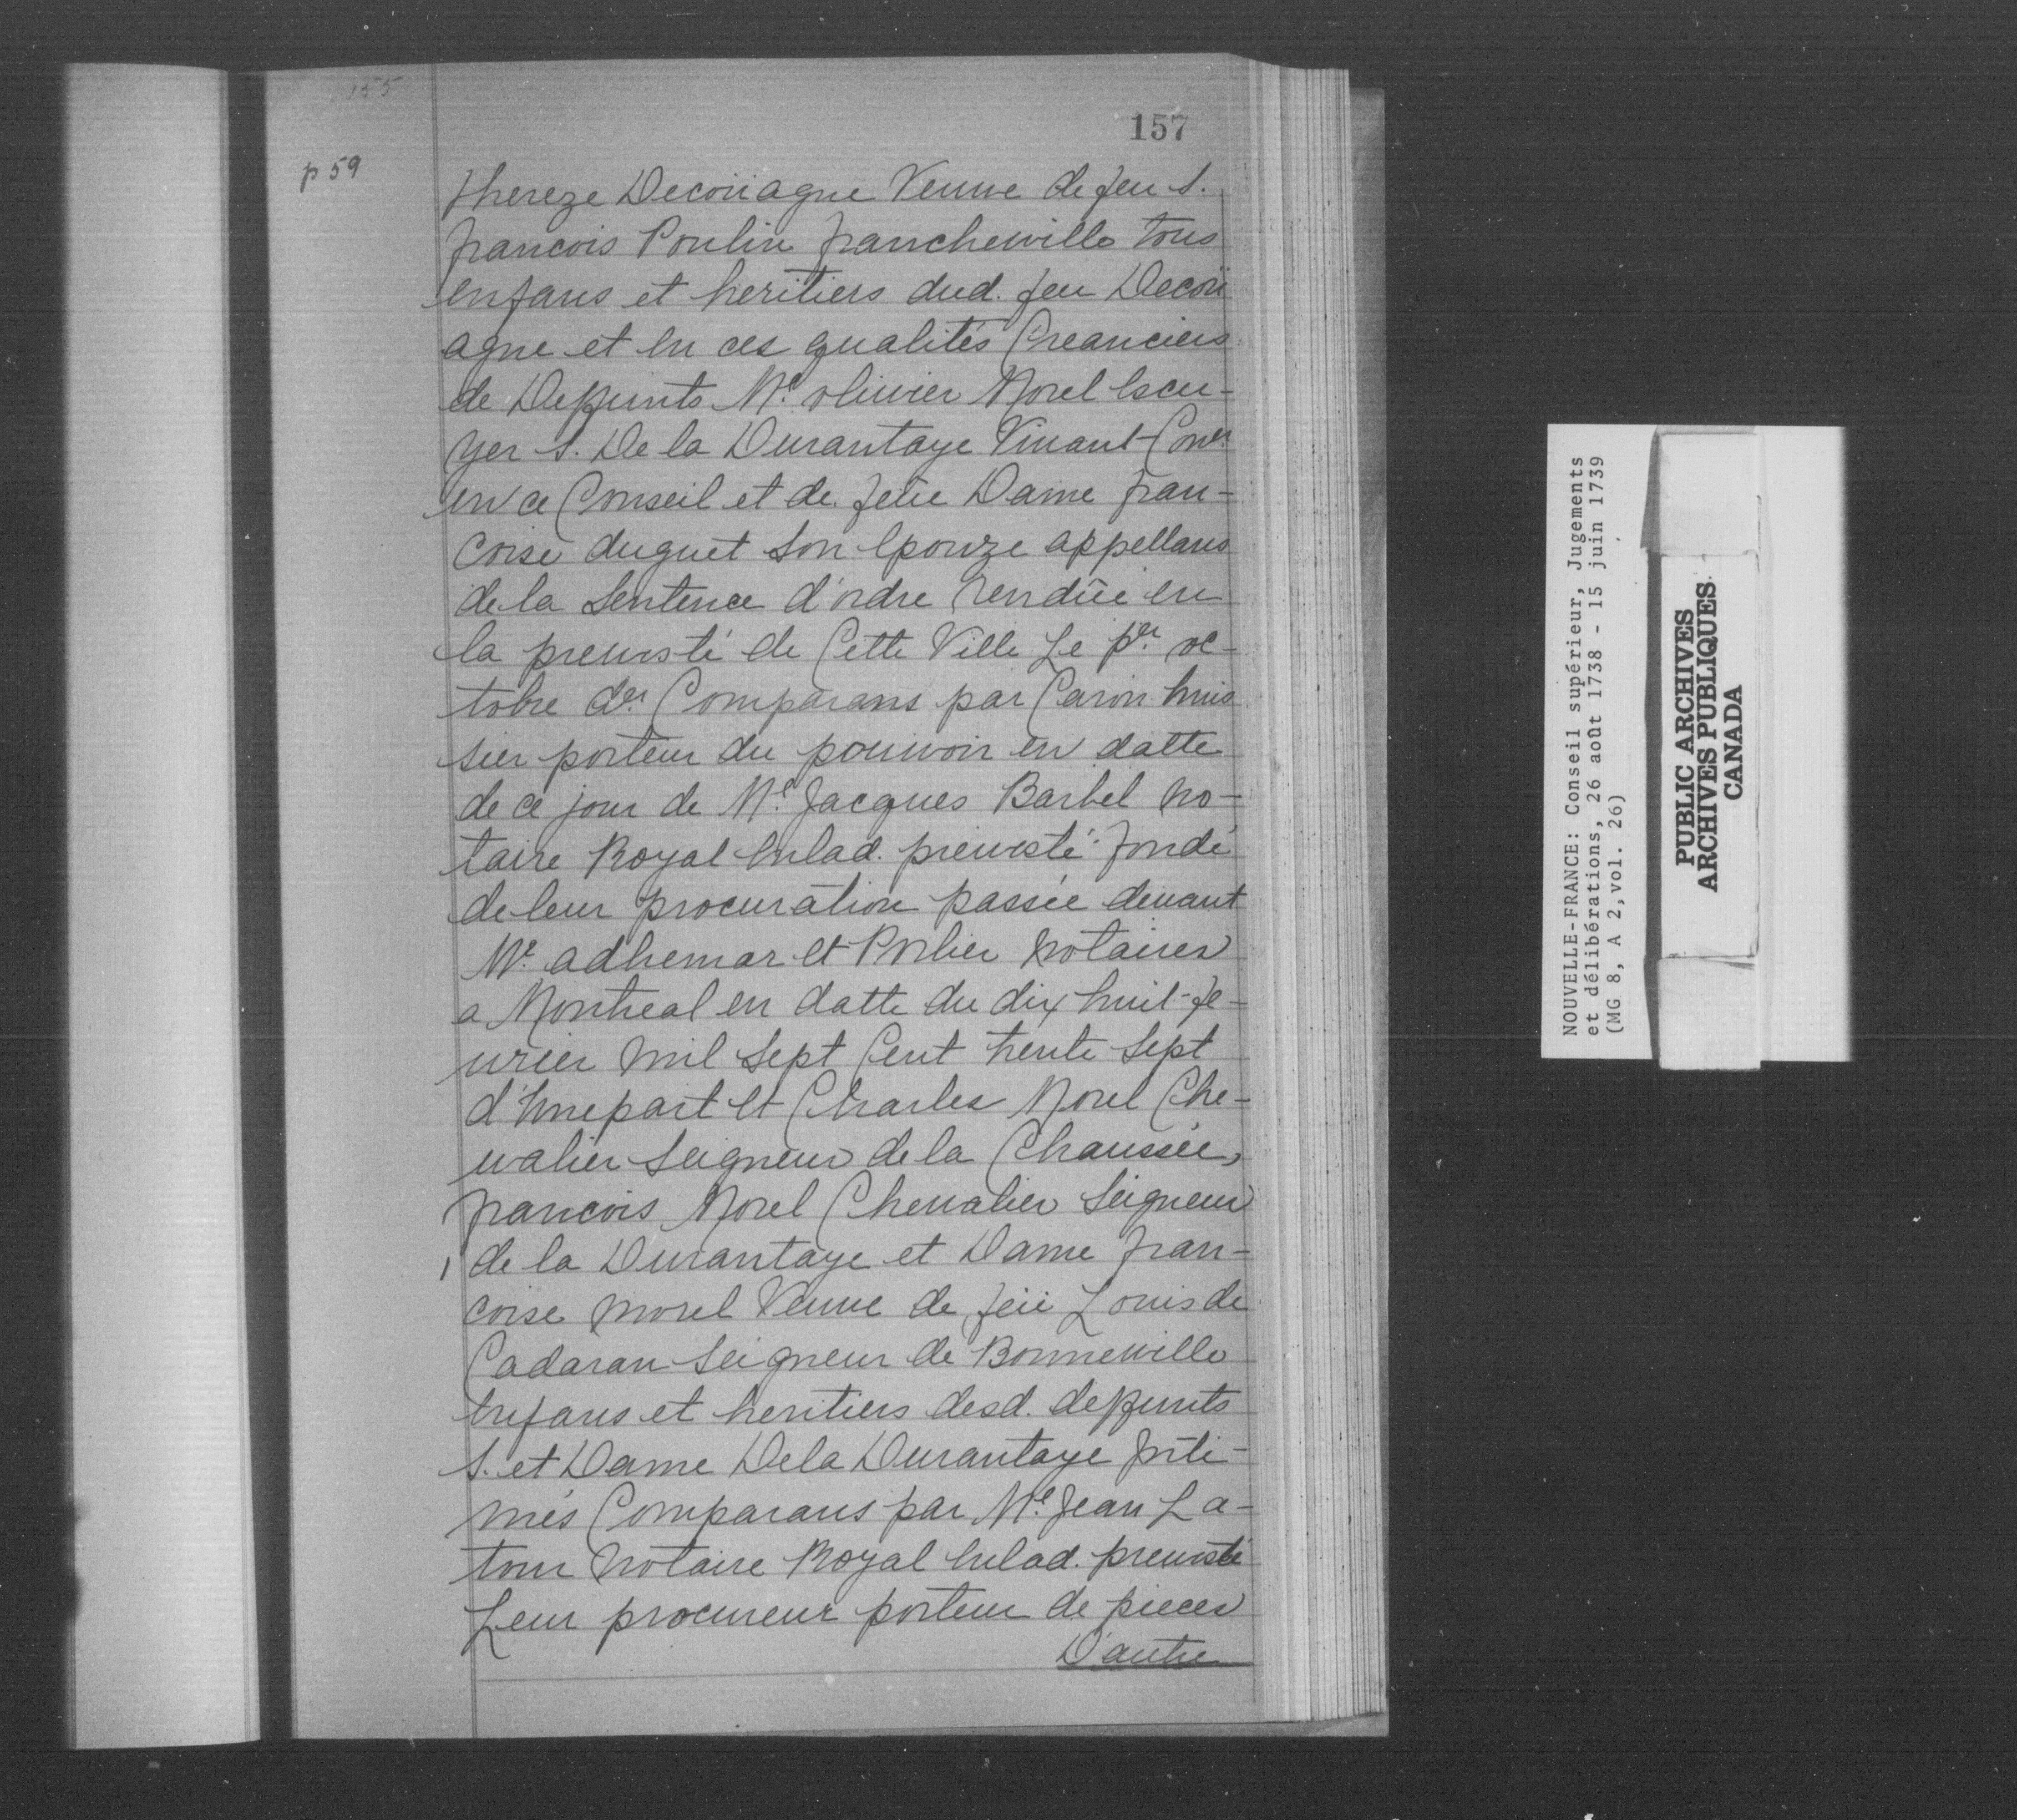 155
157
p 59
thereze Decoüagne Veuve de feu S.
francois Poulin francheuille tous
enfans et heritiers dud. feu Decoü
agne et en ces qualités Creanciers
de Deffunts Me. oliuier Morel Escu-
yer S. De la Durantaye Viuant Coner.
en ce Conseil et de feüe Dame fran-
coise duguet Son Epouze appellans
de la Sentence d'ordre rendüe en
la preuosté de Cette Ville Le pr. oc-
tobre der. Comparans par Caron huis
sier porteur du pouuoir en datte
de ce jour de Me. Jacques Barbel no-
taire Royal Enlad. preuosté fondé
de leur procuration passée deuant
Me. adhemar et Porlier Notaires
a Montreal en datte du dix huit fe-
urier mil Sept Cent trente Sept
d'Unepart et Charles Morel Che-
ualier Seigneur de la Chaussée,
francois Morel Cheualier Seigneur
de la Durantaye et Dame fran-
coise Morel Veuue de feü Louis de
Cadaran Seigneur de Bonneuille
Enfans et heritiers desd. deffunts
S. et Dame De la Durantaye Inti-
més Comparans par Me. Jean La-
tour Notaire Royal Enlad. preuosté
Leur procureur porteur de pieces
D'autre
NOUVELLE-FRANCE: Conseil supérieur, Jugements
et délibérations, 26 août 1738 - 15 juin 1739
(MG 8, A 2,vol. 26)
PUBLIC ARCHIVES
ARCHIVES PUBLIQUES
CANADA